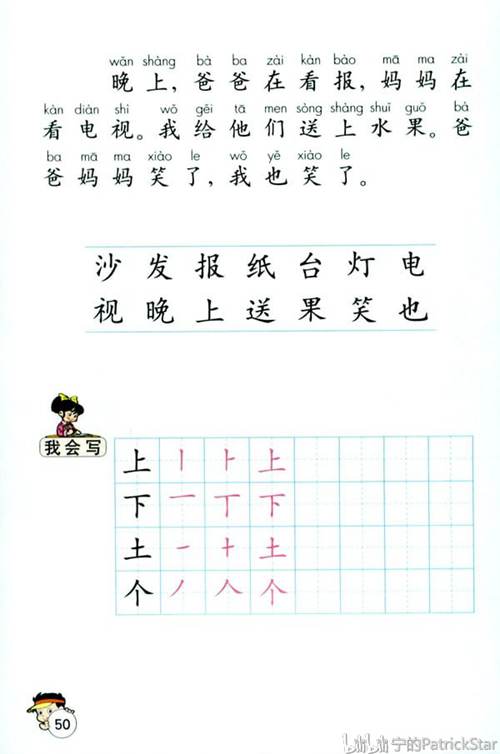 wǎn shàng bà ba zài kàn bào mā ma zài
晚上，爸爸在看报，妈妈在
kàn diàn shì wǒ gěi tā men sòng shàng shuǐ guǒ bà
看电视。我给他们送上水果。爸
ba mā ma xiào le wǒ yě xiào le
爸妈妈笑了，我也笑了。
沙发报纸台灯电
视晚上送果笑也
我会写
上丨⺊上
下一丅下
土一十土
个丿人个
50
bilibili 宁的PatrickStar